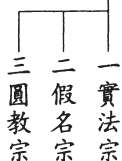 一實法宗
二假名宗
三圓教宗